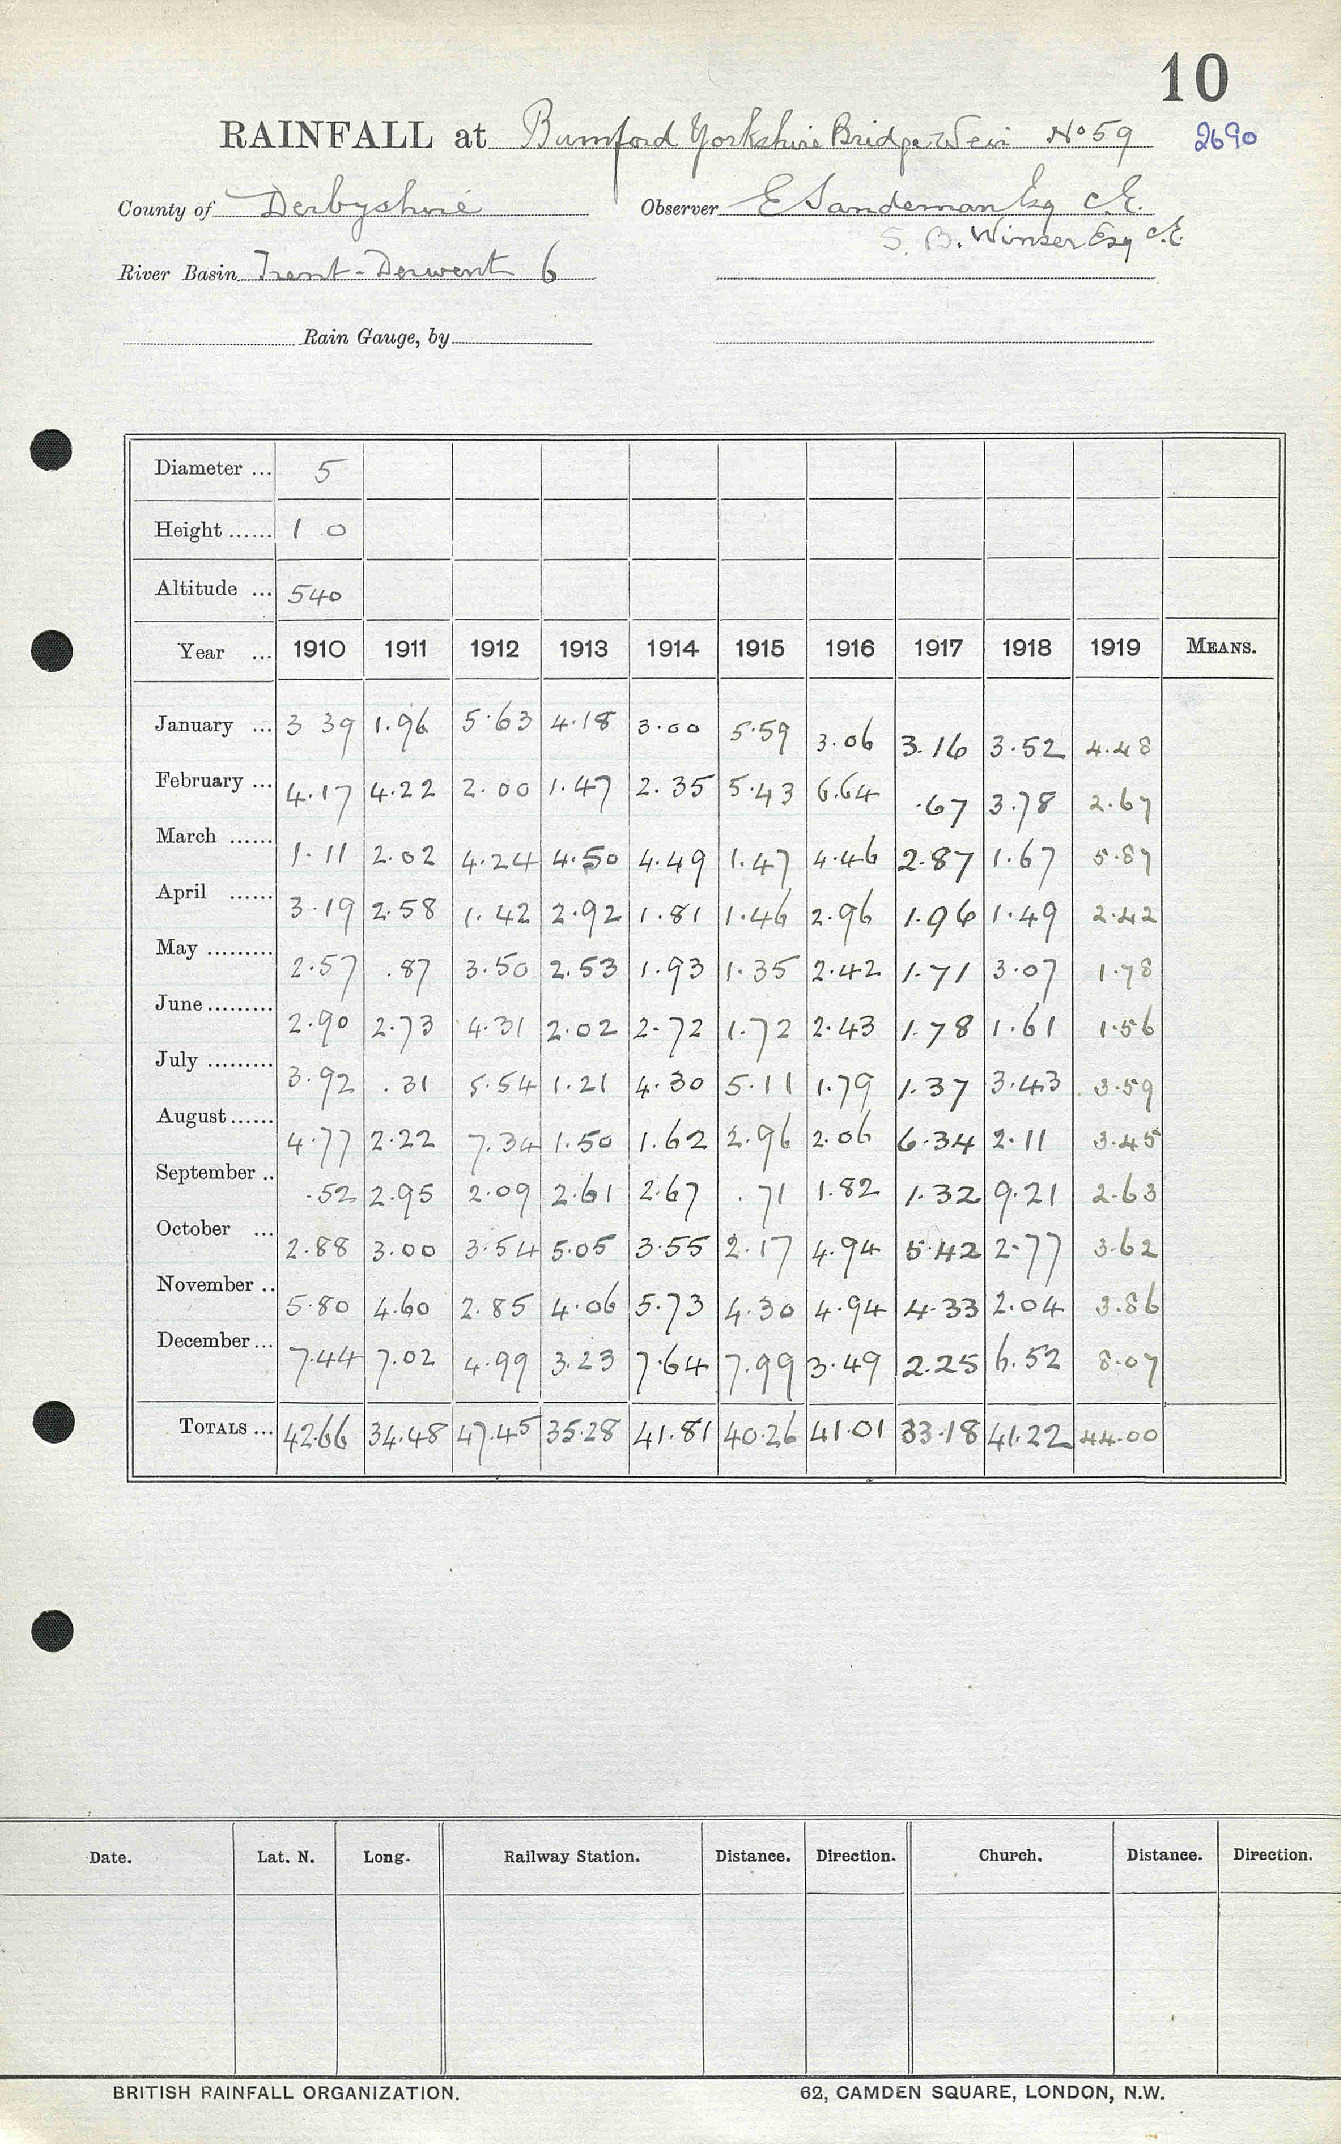 10
RAINFALL at Bamford Yorkshire Bridge Weir No 59 2690
County of Derbyshire Observer E Sandeman Esq C.E.
S. B. Winser Esq C.E
River Basin Trent-Derwent 6
Rain Gauge, by
Diameter ... 5
Height ...... 1 0
Altitude ... 540
Year ... 1910 1911 1912 1913 1914 1915 1916 1917 1918 1919 MEANS.
January ... 3 39 1.96 5.63 4.18 3.00 5.59 3.06 3.16 3.52 4.48
February ... 4.17 4.22 2.00 1.47 2.35 5.43 6.64 .67 3.78 2.67
March ...... 1.11 2.02 4.24 4.50 4.49 1.47 4.46 2.87 1.67 5.87
April ...... 3.19 2.58 1.42 2.92 1.81 1.46 2.96 1.96 1.49 2.42
May ......... 2.57 .87 3.50 2.53 1.93 1.35 2.42 1.71 3.07 1.78
June ......... 2.90 2.73 4.31 2.02 2.72 1.72 2.43 1.78 1.61 1.56
July ......... 3.92 .31 5.54 1.21 4.30 5.11 1.79 1.37 3.43 3.59
August ...... 4.77 2.22 7.34 1.50 1.62 2.96 2.06 6.34 2.11 3.45
September .. .52 2.95 2.09 2.61 2.67 .71 1.82 1.32 9.21 2.63
October ... 2.88 3.00 3.54 5.05 3.55 2.17 4.94 5.42 2.77 3.62
November .. 5.80 4.60 2.85 4.06 5.73 4.30 4.94 4.33 2.04 3.86
December ... 7.44 7.02 4.99 3.23 7.64 7.99 3.49 2.25 6.52 8.07
TOTALS ... 42.66 34.48 47.45 35.28 41.81 40.26 41.01 33.18 41.22 44.00
Date. Lat. N. Long. Railway Station. Distance. Direction. Church. Distance. Direction.
BRITISH RAINFALL ORGANIZATION. 62, CAMDEN SQUARE, LONDON, N.W.